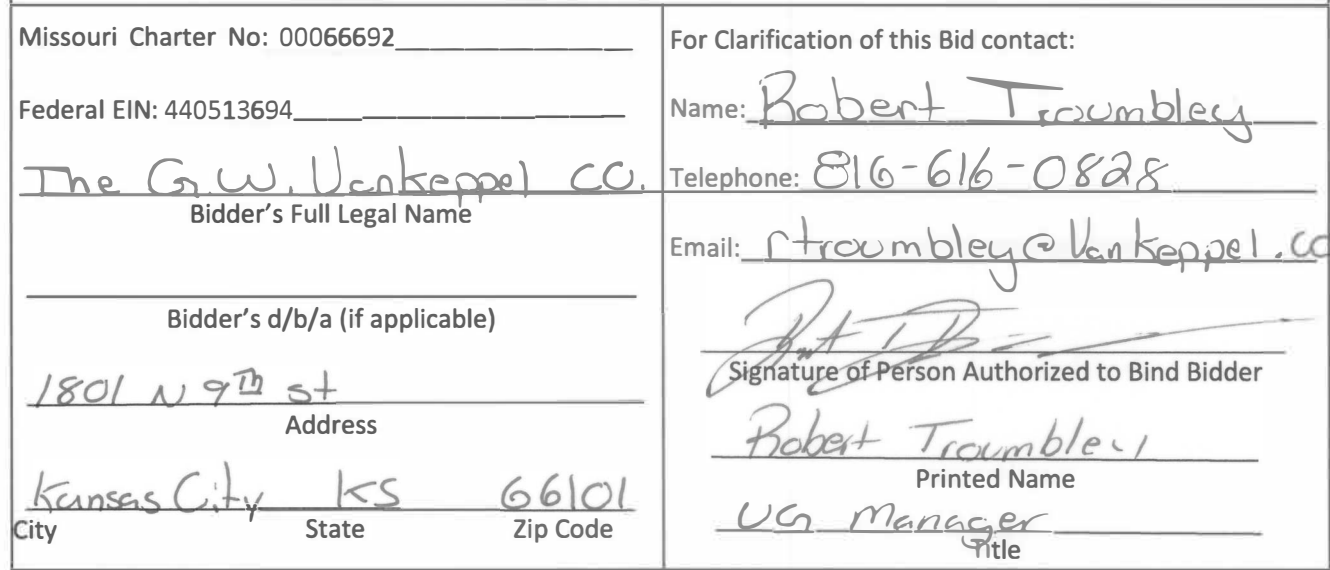 Missouri Charter No: 00066692
Federal EIN: 440513694
The G.W. Vankeppel CO.
Bidder's Full Legal Name
Bidder's d/b/a (if applicable)
1801 N 9Th st
Address
Kansas City KS 66101
City State Zip Code
For Clarification of this Bid contact:
Name: Robert Troumbley
Telephone: 816-616-0828
Email: rtroumbley@Vankeppel.co
Signature of Person Authorized to Bind Bidder
Robert Troumbley
Printed Name
UG Manager
Title